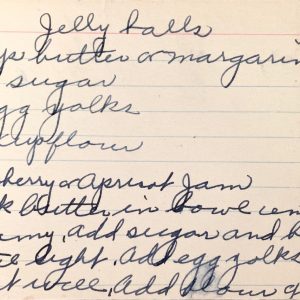 Jelly balls
butter or margarin
sugar
egg yolks
cup flour
cherry or Apricot Jam
butter in bowl un
my, add sugar and b
light, Add egg yolks
t well, Add flour